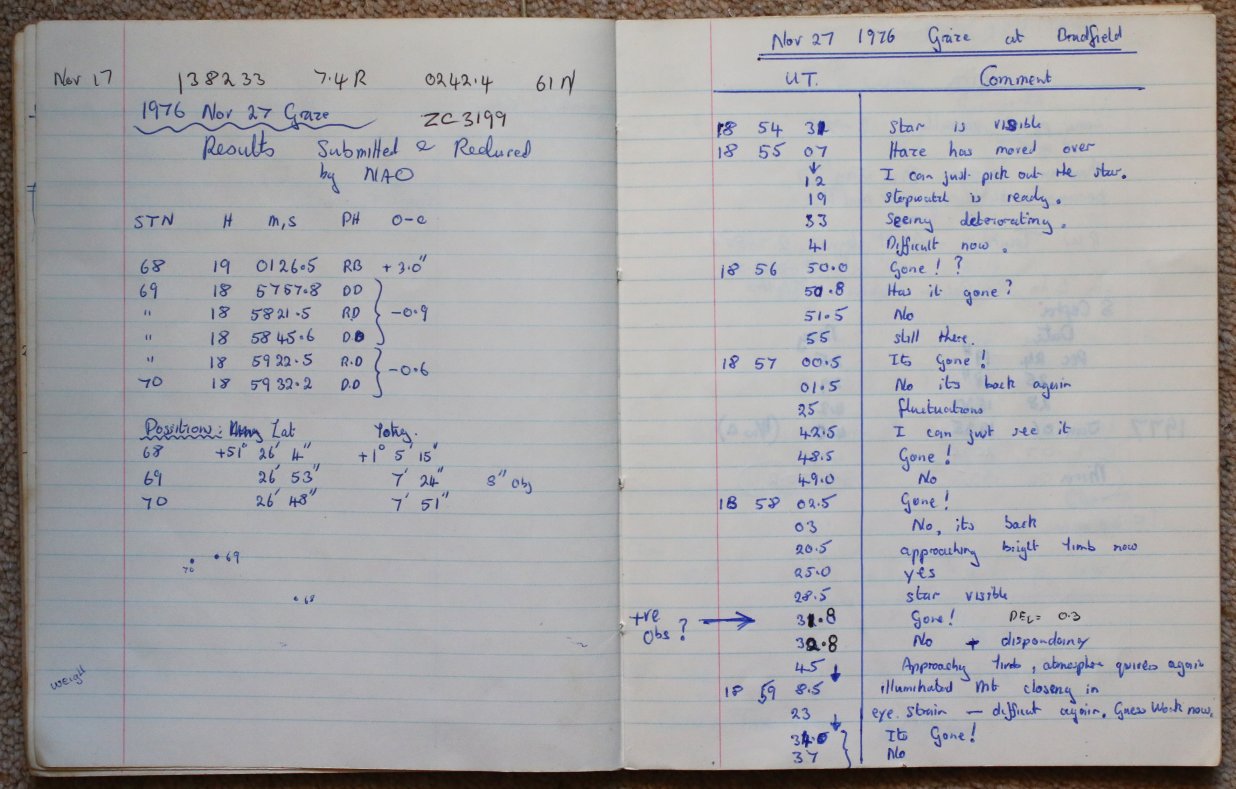 Nov 17 138233 7.4 R 0242.4 61 N
1976 Nov 27 Graze ZC 3199
Results Submitted & Reduced
by NAO
STN H m,s PH O-C
68 19 0126.5 RB +3.0"
69 18 5757.8 DD
" 18 5821.5 RD -0.9
" 18 5845.6 DD
" 18 5922.5 RD
70 18 5932.2 DD -0.6
Possitions: Lat
68 +51° 26' 4" +1° 5' 15"
69 26' 53" 7' 24" 8" Obj
70 26' 48" 7' 51"
69
70
68
weigh
Nov 27 1976 Graze at Bradfield
U.T. Comment
18 54 31 Star is visible
18 55 07 Haze has moved over
12 I can just pick out the star.
19 stopwatch is ready.
33 Seeing deteriorating.
41 Difficult now.
18 56 50.0 Gone! ?
50.8 Has it gone?
51.5 No
55 still there.
18 57 00.5 Its Gone!
01.5 No its back again
25 fluctuations
42.5 I can just see it
48.5 Gone!
49.0 No
18 58 02.5 Gone!
03 No, its back
20.5 approaching bright limb now
25.0 yes
28.5 star visible
+ve Obs? 31.8 Gone! DEL= 0.3
32.8 No + dispondancy
45 Approachg limb, atmosphere quivers again
18 59 8.5 illuminated Mt closing in
23 eye strain — difficult again. Guess Work now.
34.5 Its Gone!
37 No